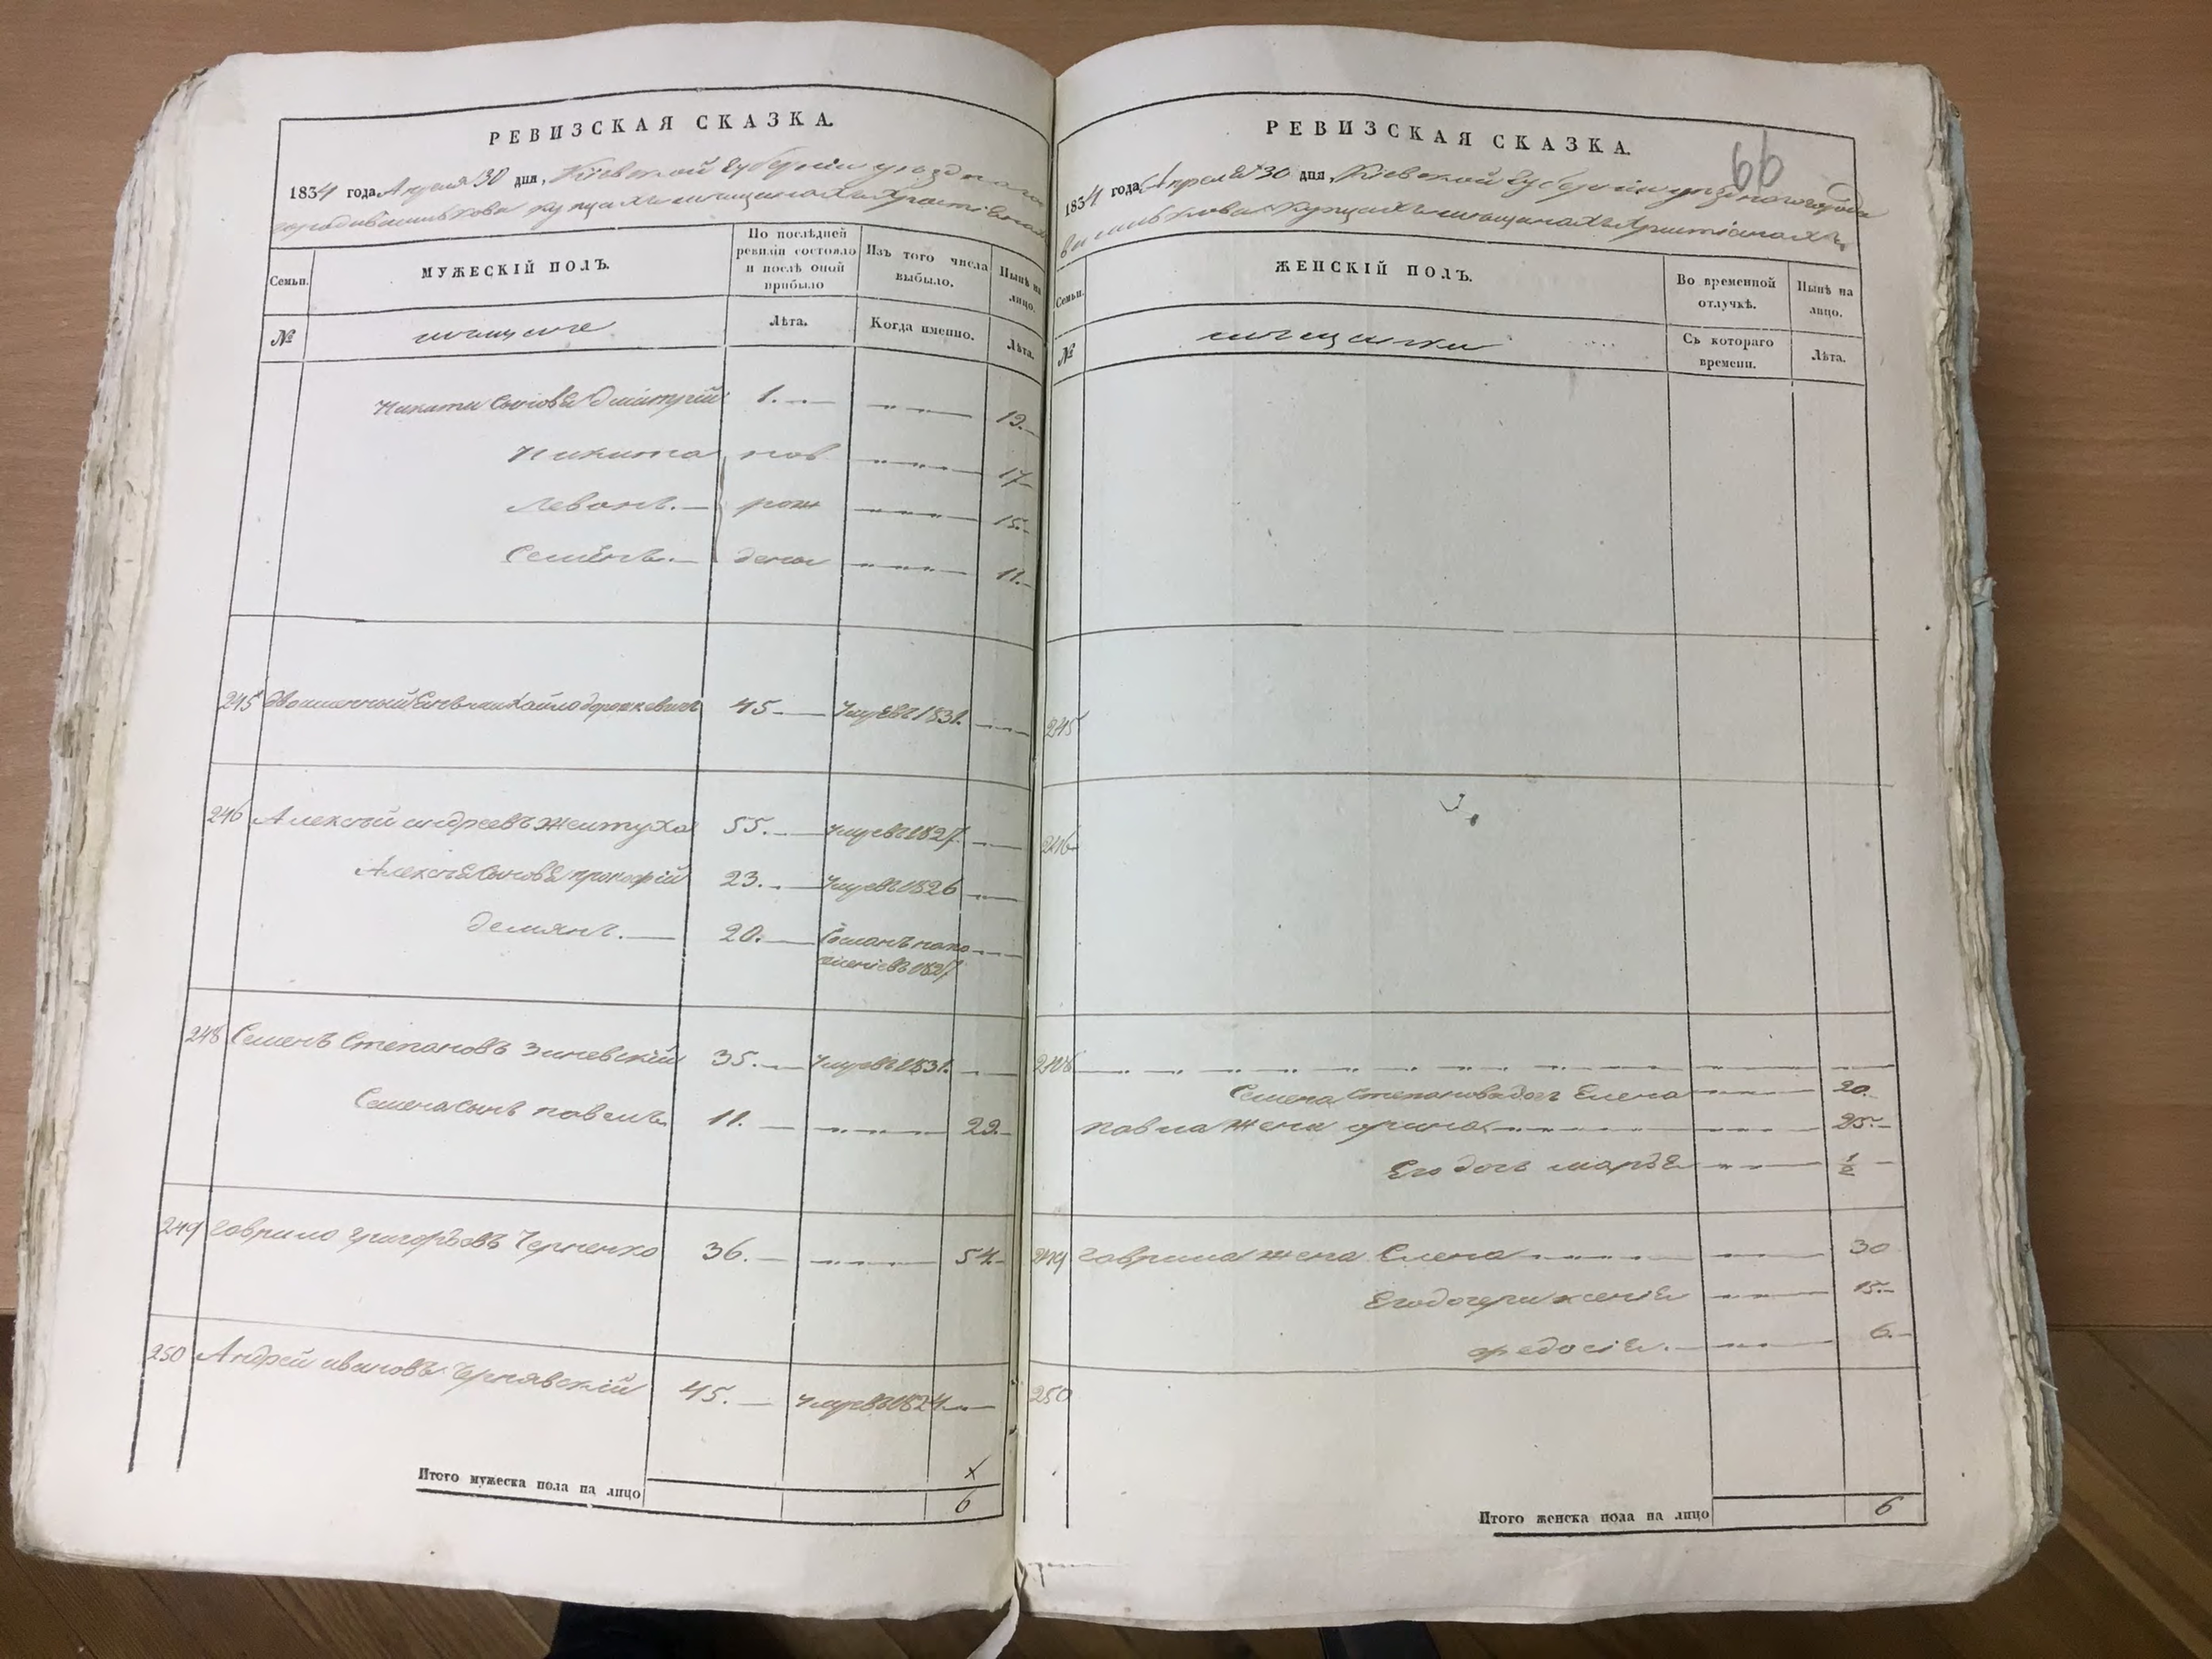 РЕВИЗСКАЯ СКАЗКА.
1834 года Апреля 30 дня, Кіевской Губерніи уездного
города Василькова купцахъ мещанахъ христіанахъ
Семьи.
МУЖЕСКІЙ ПОЛЪ.
По послѣдней ревизіи состояло и послѣ оной прибыло
Изъ того числа выбыло.
Нынѣ на лицо.
№
мещане
Лѣта.
Когда именно.
Лѣта.
Никиты Сыновья Дмитрій 1. 19.
Никита нов 17
Леонъ рож 15
Семенъ дены 11.
245 Михайло 45 Умре въ 1831.
246 Алексей андреевъ Желтуха 55. умре въ 1827.
Алексея Сыновья прокофій 23. умре въ 1826
демянъ. 20. въ 1827
248 Семенъ Степановъ Зиневскій 35. умре въ 1831.
Семена сынъ павелъ 11. 29.
249 гаврило григорьевъ Черненко 36. 54.
250 Андрей ивановъ Чернявскій 45. умре въ 1824
Итого мужеска пола на лицо
6
РЕВИЗСКАЯ СКАЗКА.
66
1834 года Апреля 30 дня, Кіевской Губерніи уездного города
Василькова купцахъ мещанахъ христіанахъ
Семьи.
ЖЕНСКІЙ ПОЛЪ.
Во временной отлучкѣ.
Нынѣ на лицо.
№
мещанки
Съ котораго времени.
Лѣта.
245
246
248
Семена Степанова доч Елена 20.
павла жена орина 25.
Его доч марья 1/2
249 гаврила жена Елена 30
Его дочери ксенія 15.
федосія. 6.
250
Итого женска пола на лицо
6